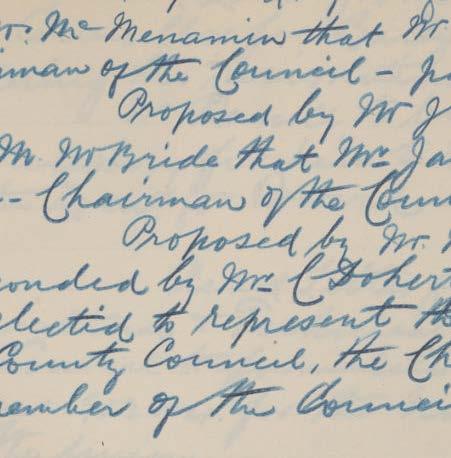 Mr. McMenamin that Mr
irman of the Council – pa
Proposed by Mr J
M. McBride that Mr. Ja
– Chairman of the Coun
Proposed by Mr.
conded by Mr. C Dohert
elected to represent th
County Council, the Ch
member of the Council